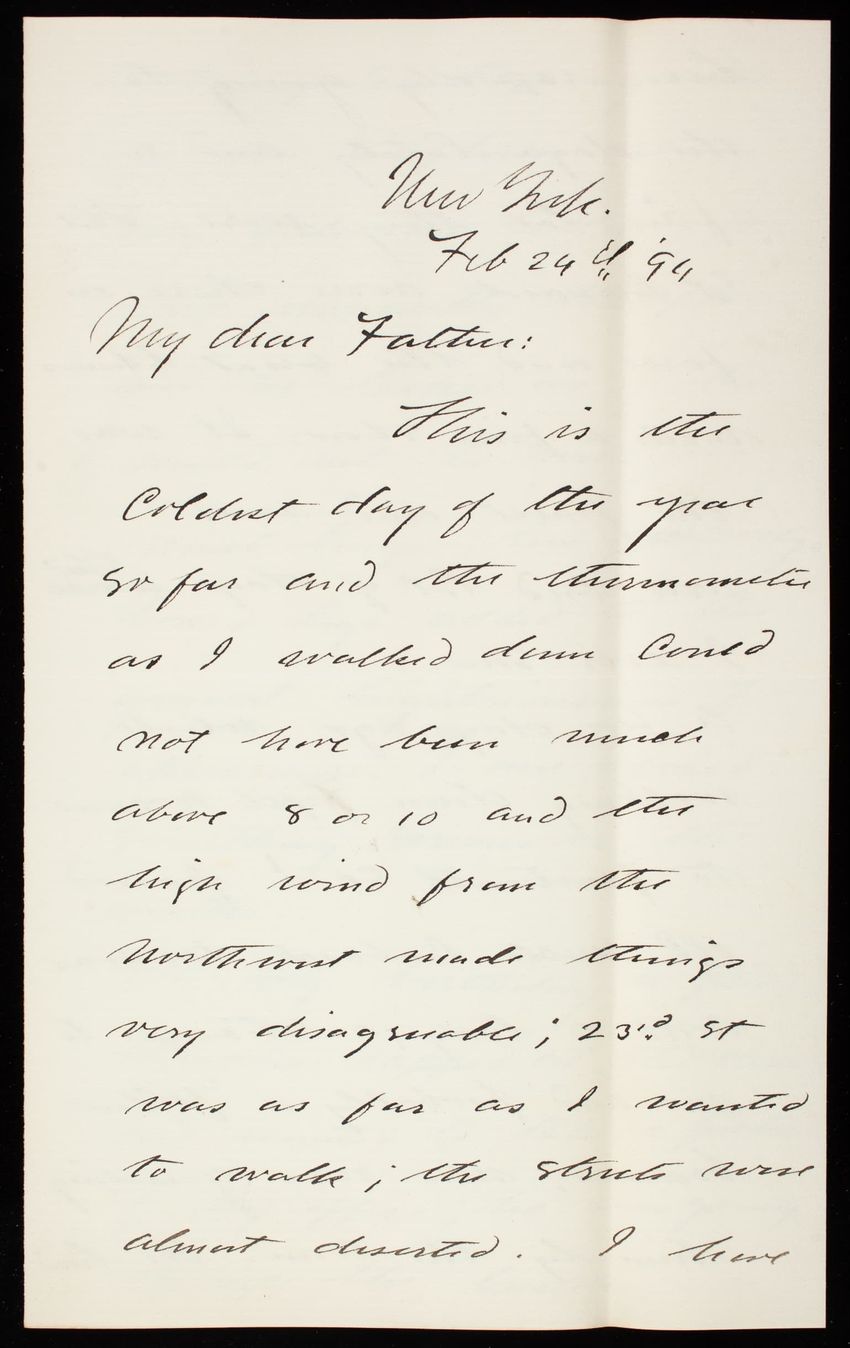 New York.
Feb 24th '94
My dear Father:
This is the
Coldest day of the year
so far and the thermometer
as I walked down Could
not have been much
above 8 or 10 and the
high wind from the
Northwest made things
very disagreeable; 23rd St
was as far as I wanted
to walk; the streets were
almost deserted. I have